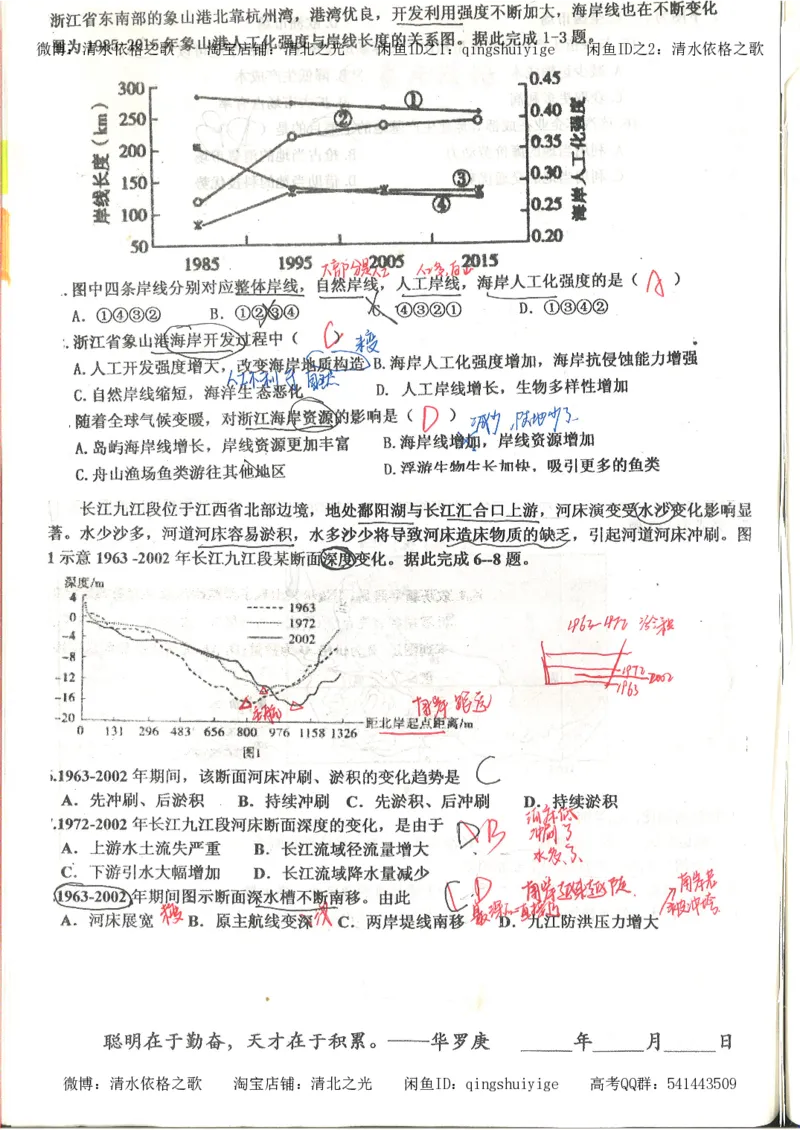 浙江省东南部的象山港北靠杭州湾，港湾优良，开发利用强度不断加大，海岸线也在不断变化
图为 1985-2015 年象山港人工化强度与岸线长度的关系图。据此完成 1-3 题。
微博：清水依格之歌 淘宝店铺：清北之光 闲鱼ID之1：qingshuiyige 闲鱼ID之2：清水依格之歌
岸线长度（km）
300
250
200
150
100
50
0.45
0.40
0.35
0.30
0.25
0.20
海岸人工化强度
① ② ③ ④
1985 1995 2005 2015
图中四条岸线分别对应整体岸线，自然岸线，人工岸线，海岸人工化强度的是（ A ）
A. ①④③② B. ①②③④ C. ④③②① D. ①③④②
浙江省象山港海岸开发过程中（ C ）
A.人工开发强度增大，改变海岸地质构造 B.海岸人工化强度增加，海岸抗侵蚀能力增强
C.自然岸线缩短，海洋生态恶化 D. 人工岸线增长，生物多样性增加
随着全球气候变暖，对浙江海岸资源的影响是（ D ）
A.岛屿海岸线增长，岸线资源更加丰富 B.海岸线增加，岸线资源增加
C.舟山渔场鱼类游往其他地区 D.浮游生物生长加快，吸引更多的鱼类
长江九江段位于江西省北部边境，地处鄱阳湖与长江汇合口上游，河床演变受水沙变化影响显
著。水少沙多，河道河床容易淤积，水多沙少将导致河床造床物质的缺乏，引起河道河床冲刷。图
1 示意 1963 -2002 年长江九江段某断面深度变化。据此完成 6--8 题。
深度/m
4
0
-4
-8
-12
-16
-20
1963
1972
2002
0 131 296 483 656 800 976 1158 1326
距北岸起点距离/m
图1
1972
2002
1963
.1963-2002 年期间，该断面河床冲刷、淤积的变化趋势是 C
A．先冲刷、后淤积 B．持续冲刷 C．先淤积、后冲刷 D．持续淤积
.1972-2002 年长江九江段河床断面深度的变化，是由于 B
A．上游水土流失严重 B．长江流域径流量增大
C．下游引水大幅增加 D．长江流域降水量减少
冲刷了
1963-2002 年期间图示断面深水槽不断南移。由此 D
A．河床展宽 B．原主航线变深 C．两岸堤线南移 D．九江防洪压力增大
聪明在于勤奋，天才在于积累。——华罗庚 _____年_____月_____日
微博：清水依格之歌 淘宝店铺：清北之光 闲鱼ID：qingshuiyige 高考QQ群：541443509